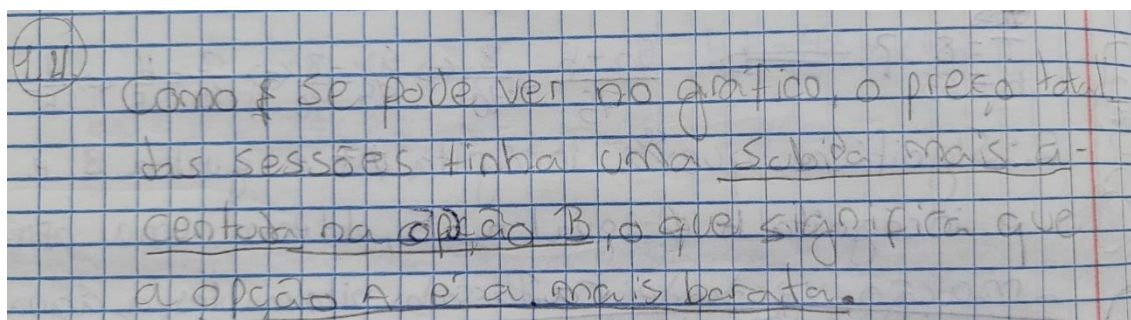 1.4
Como se pode ver no gráfico, o preço total
das sessões tinha uma subida mais a-
centuda na opção B, o que significa que
a opção A é a mais barata.